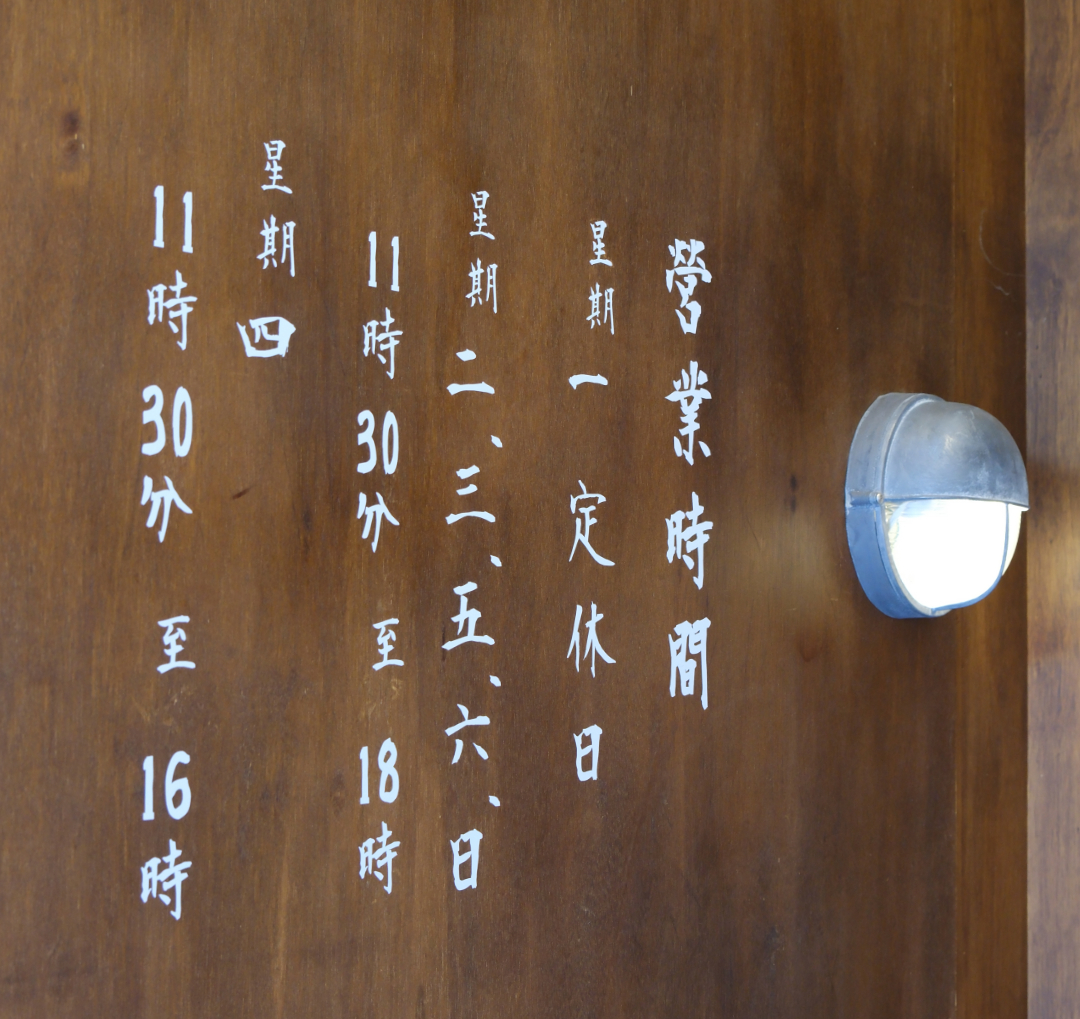 營業時間
星期一 定休日
星期二、三、五、六、日
11時30分 至 18時
星期四
11時30分 至 16時